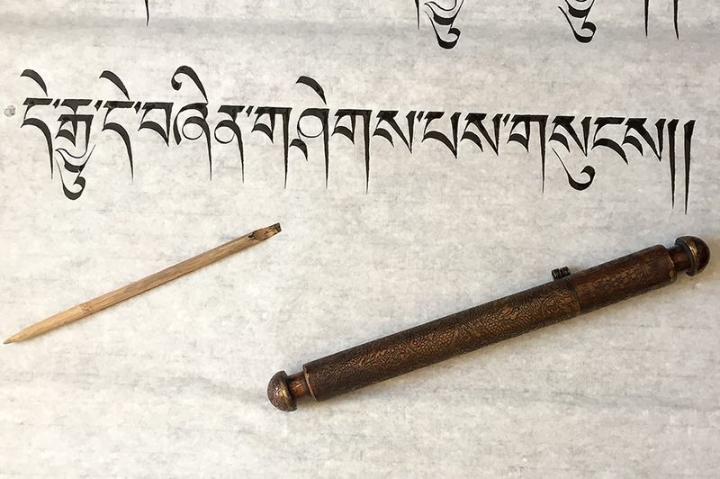 དེ་རྒྱུ་དེ་བཞིན་གཤེགས་པས་གསུངས།།